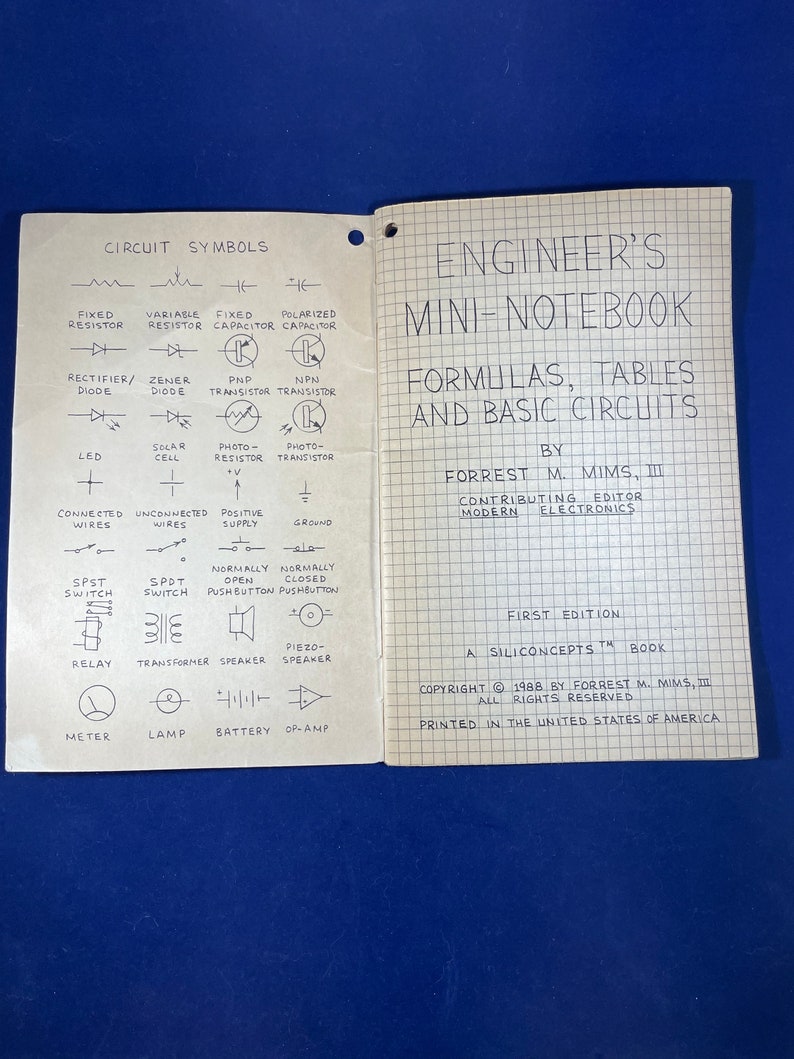 CIRCUIT SYMBOLS
FIXED RESISTOR
VARIABLE RESISTOR
FIXED CAPACITOR
+
POLARIZED CAPACITOR
RECTIFIER/ DIODE
ZENER DIODE
PNP TRANSISTOR
NPN TRANSISTOR
LED
SOLAR CELL
PHOTO- RESISTOR
PHOTO- TRANSISTOR
CONNECTED WIRES
UNCONNECTED WIRES
+V
POSITIVE SUPPLY
GROUND
SPST SWITCH
SPDT SWITCH
NORMALLY OPEN PUSHBUTTON
NORMALLY CLOSED PUSHBUTTON
RELAY
TRANSFORMER
SPEAKER
+ -
PIEZO- SPEAKER
METER
LAMP
+ -
BATTERY
- +
OP-AMP
ENGINEER'S
MINI-NOTEBOOK
FORMULAS, TABLES
AND BASIC CIRCUITS
BY
FORREST M. MIMS, III
CONTRIBUTING EDITOR
MODERN ELECTRONICS
FIRST EDITION
A SILICONCEPTS™ BOOK
COPYRIGHT © 1988 BY FORREST M. MIMS, III
ALL RIGHTS RESERVED
PRINTED IN THE UNITED STATES OF AMERICA